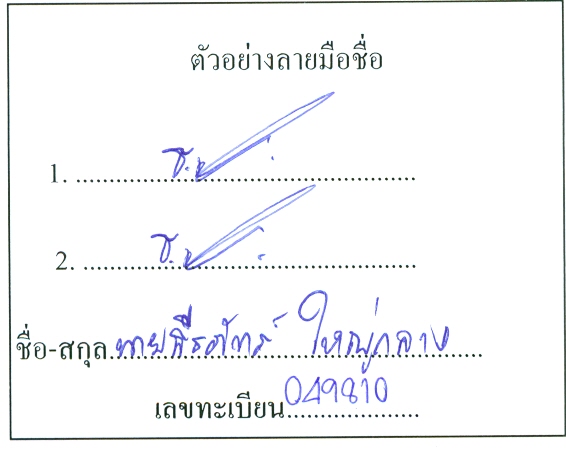 ตัวอย่างลายมือชื่อ
1. ..........
2. ..........
ชื่อ-สกุล ใหญ่กลาง
เลขทะเบียน 049810